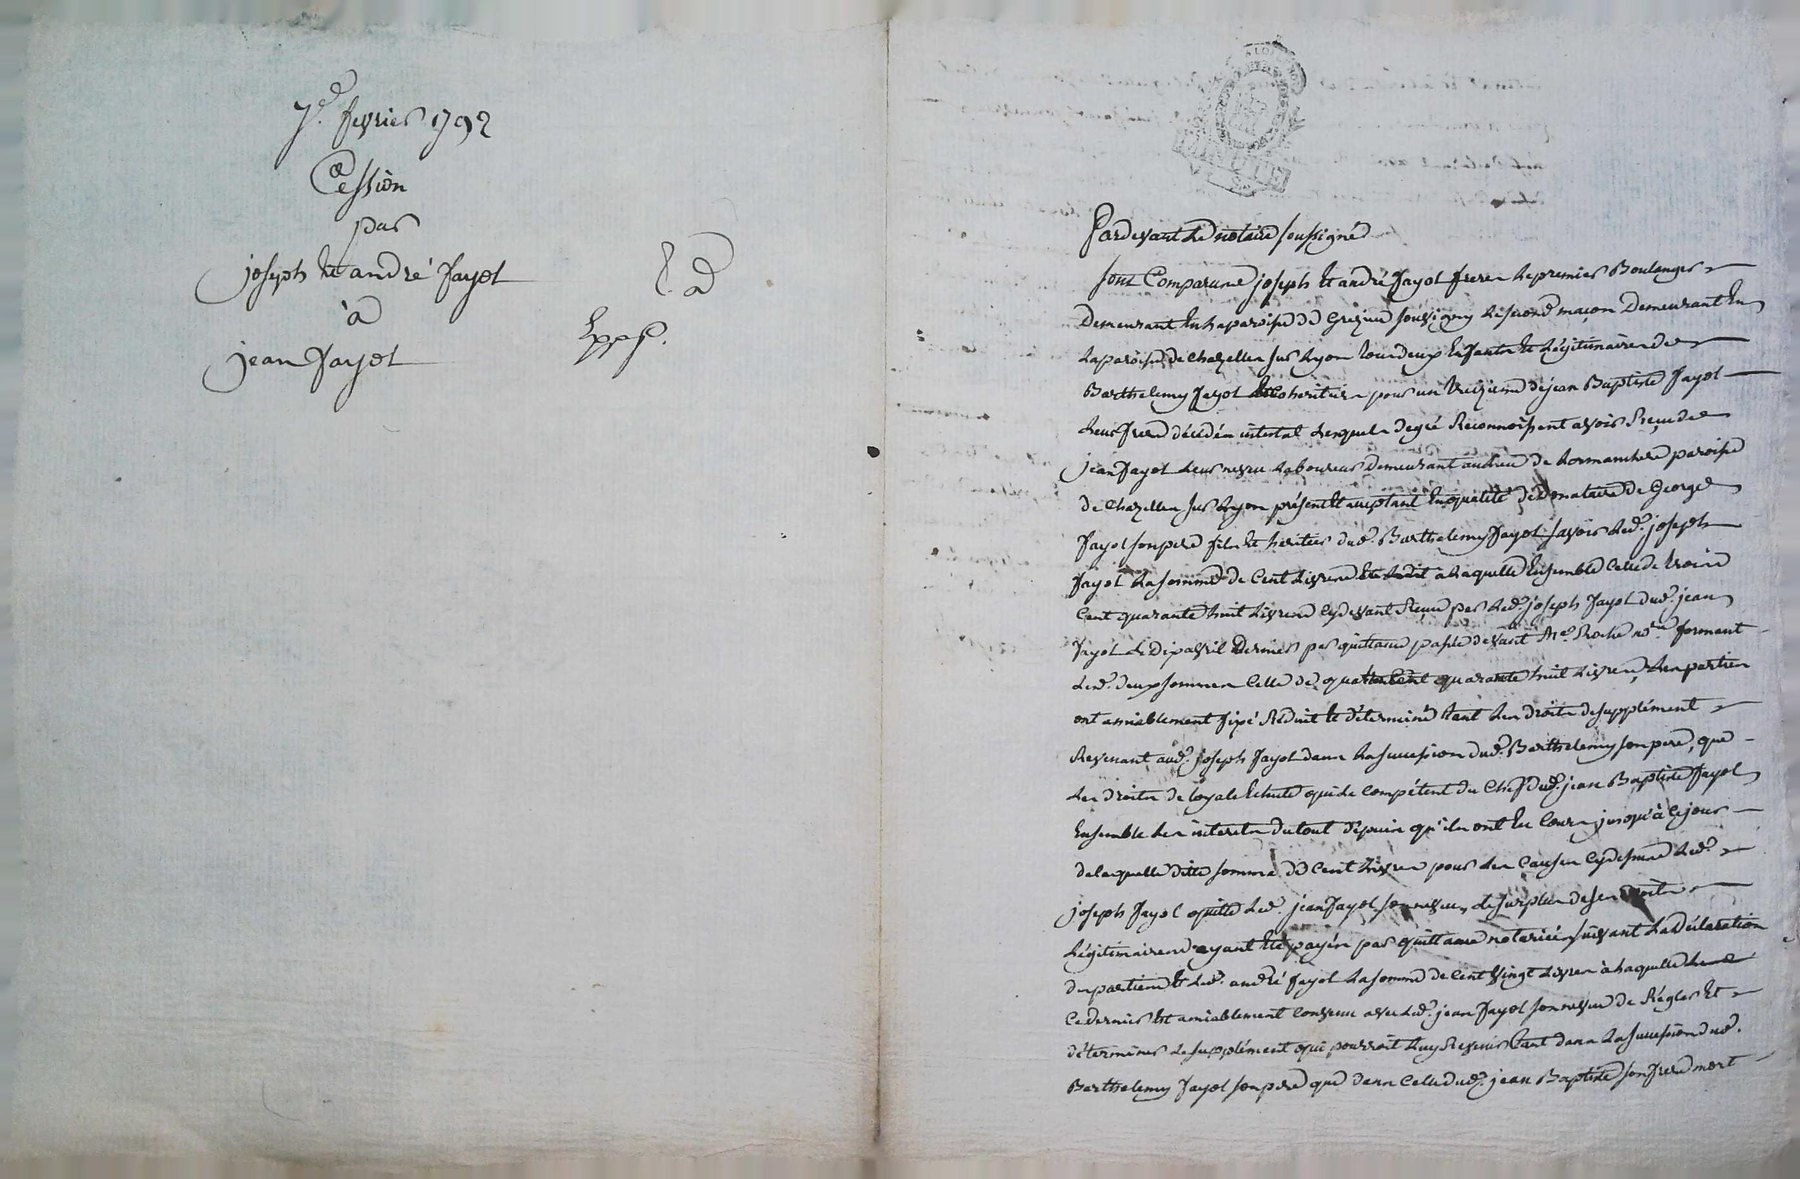 7e. fevrier 1792
Cession
par
joseph et andré fayol
à
jean fayol
Ed
Exp.
Pardevant le notaire soussigné
sont Comparus joseph et andré fayol freres le premier Boulanger
Demeurant en la paroisse de Grezieu souvigny le second maçon Demeurant En
la paroisse de chazelles sur Lyon tous deux Enfants et légitimaires de
Barthelemy fayol et Coheritiers pour un treizieme de jean Baptiste fayol
leur frere décédés intestat lesquels de gré Reconnoissent avoir Reçu de
jean fayol leur neveu laboureur demeurant au lieu de paroisse
de Chazelles sur Lyon présent et acceptant En qualité de donataire de George
fayol son pere fils et heritier dud. Barthelemy fayol savoir led. joseph
fayol la somme de Cent livres à laquelle Ensemble Celle de trois
Cent quarante huit livres Cy devant Reçue par led. joseph fayol dud. jean
fayol le dix avril dernier par quittance passée devant Me. Roche nore. formant
lesd. deux sommes Celle de quatre Cent quarante huit livres, les parties
ont amiablement fixé Réduit et déterminé tant les droits de supplément
Revenant aud. joseph fayol dans la succession dud. Barthelemy son pere, que
les droits de loyale Echute qui le Compétent du Chef dud. jean Baptiste fayol
Ensemble les interets du tout depuis qu'ils ont Eu Cours jusqu'à Ce jour
de laquelle ditte somme de Cent livres pour les Causes Cy dessus led.
joseph fayol quitte led. jean fayol son neveu, le surplus de ses droits
légitimaires ayant Eté payés par quittances notariées suivant la Déclaration
des parties Et led. andré fayol la somme de Cent Vingt livres à laquelle
Ce dernier Est amiablement Convenu avec led. jean fayol son neveu de Régler Et
déterminer le supplément qui pourroit luy Revenir tant dans la succession dud.
Barthelemy fayol son pere que dans Celle dud. jean Baptiste son frere mort